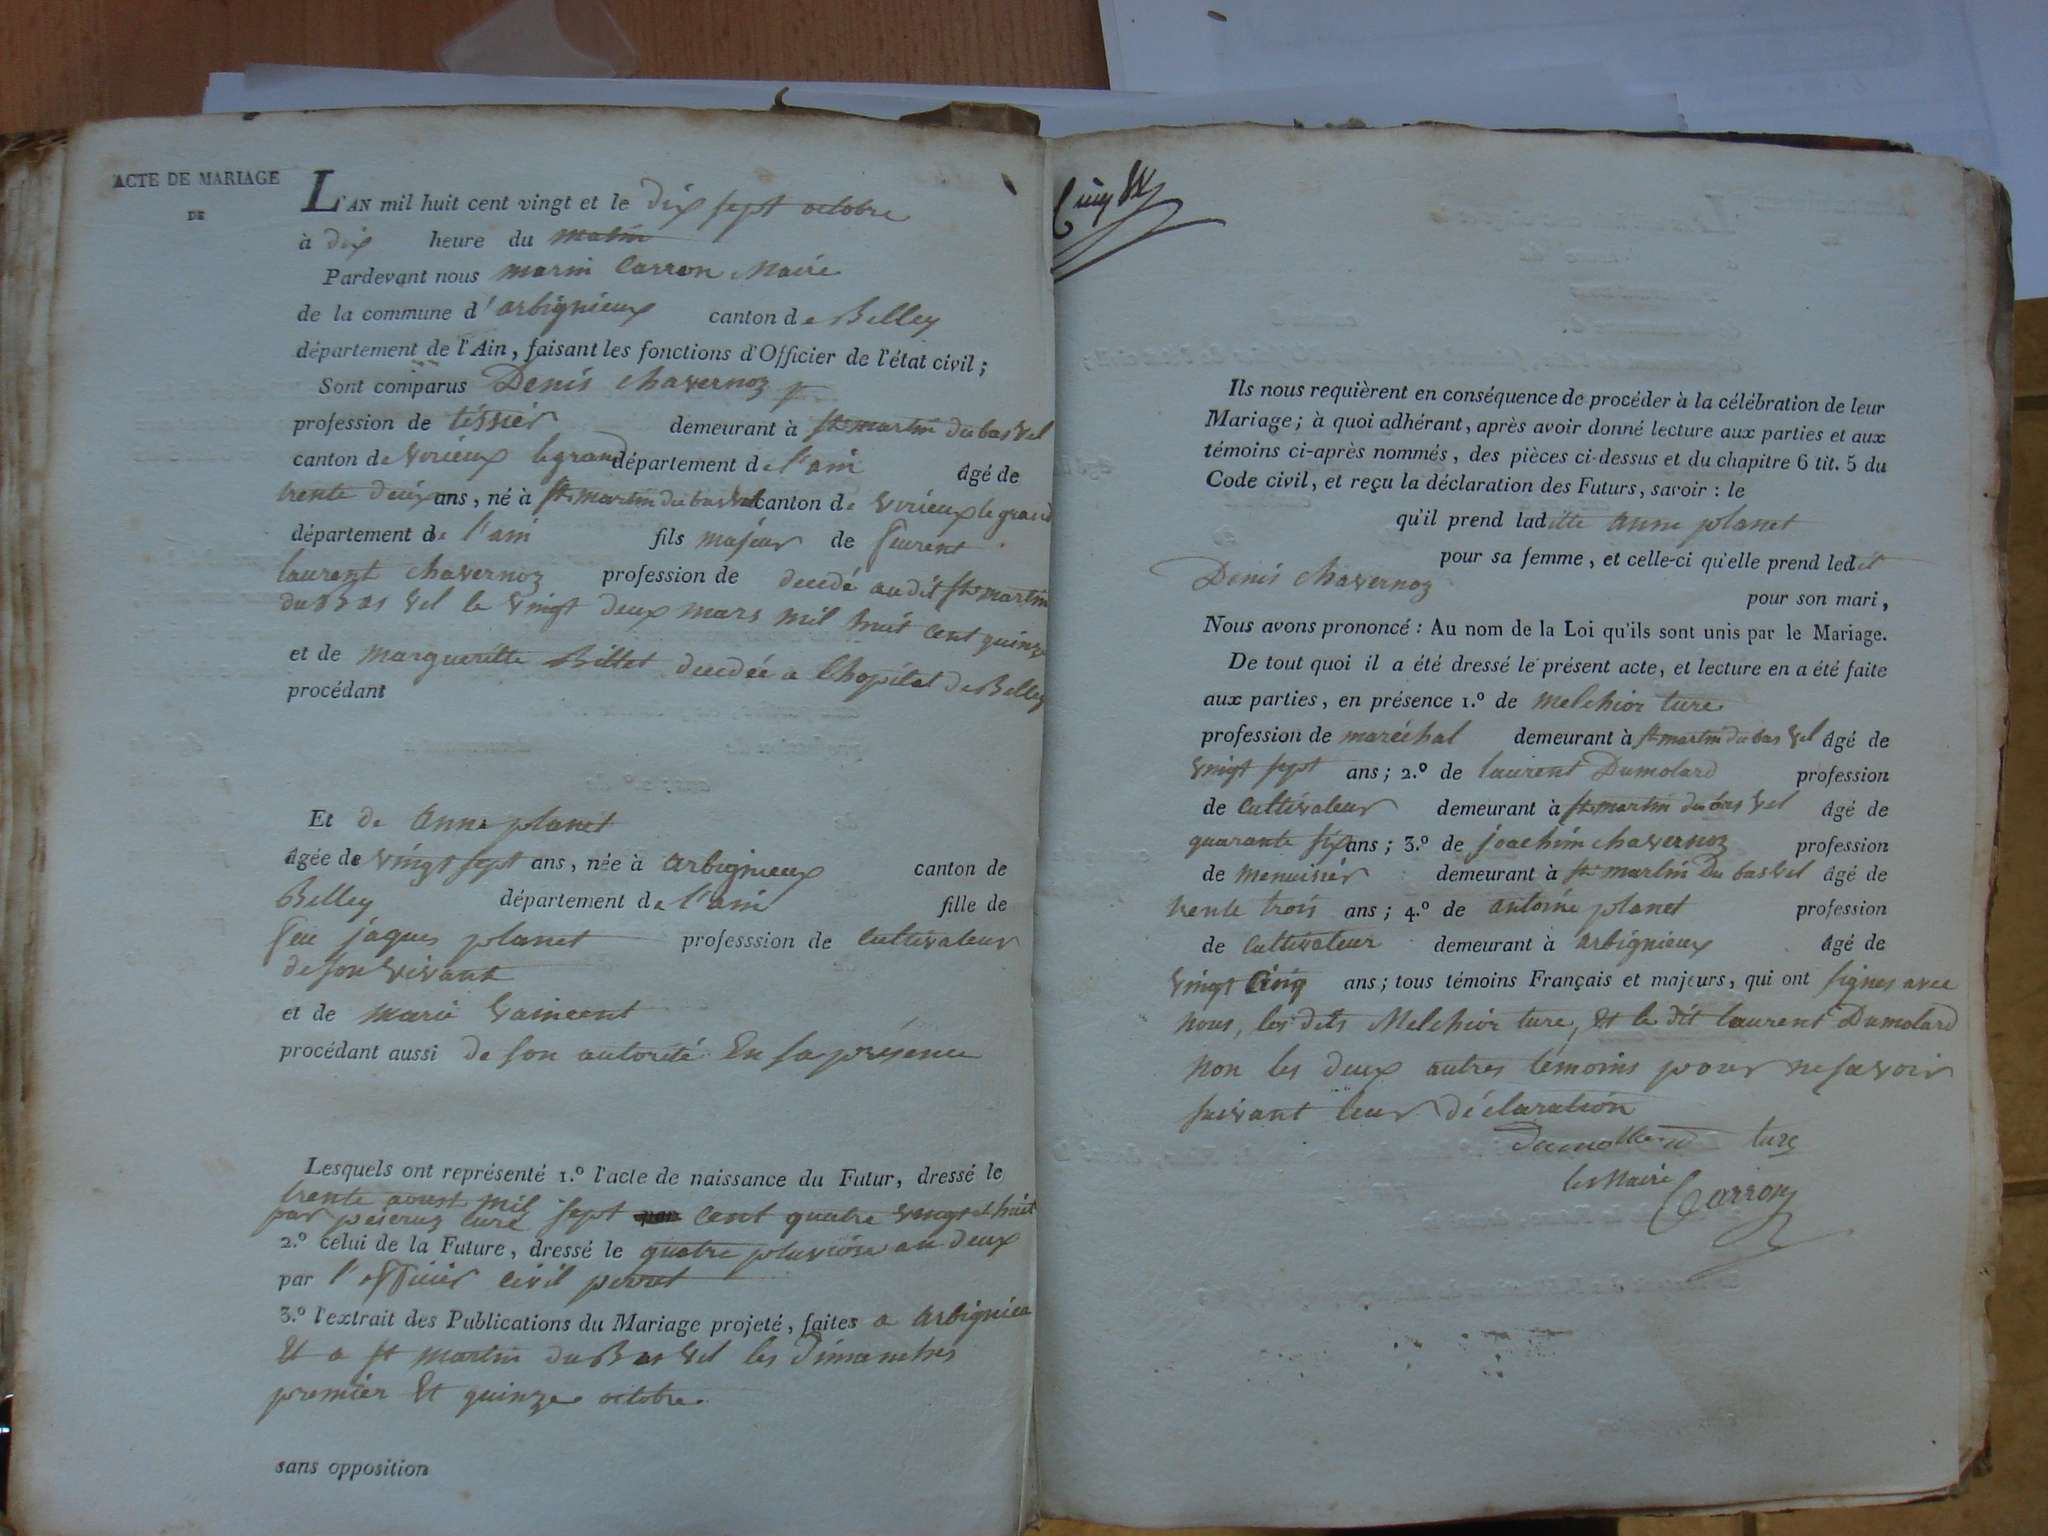 ACTE DE MARIAGE
DE
L'AN mil huit cent vingt et le dix sept octobre
à dix heure du matin
Pardevant nous marin Carron Maire
de la commune d'arbignieux canton de Belley
département de l'Ain, faisant les fonctions d'Officier de l'état civil;
Sont comparus Denis chavernoz
profession de tissier demeurant à st martin du bas vel
canton de virieux le grand département de l'ain âgé de
trente deux ans, né à st martin du bas vel canton de virieux le grand
département de l'ain fils majeur de
laurent chavernoz profession de decedé au dit st martin
du Bas vel le vingt deux mars mil huit cent quinze
et de margueritte Billet decedée a lhopital de Belley
procédant
Et de anne planet
âgée de vingt sept ans, née à arbignieux canton de
Belley département de l'ain fille de
feu jaques planet professsion de cultivateur
de son vivant
et de marie vaincent
procédant aussi de son autorité En sa présence
Lesquels ont représenté 1.º l'acte de naissance du Futur, dressé le
trente aoust mil sept cent quatre vingt et huit
par curé
2.º celui de la Future, dressé le quatre pluviose an deux
par l'officier civil perret
3.º l'extrait des Publications du Mariage projeté, faites a arbignieu
Et a st martin du Bas vel les dimanches
premier Et quinze octobre
sans opposition
Ils nous requièrent en conséquence de procéder à la célébration de leur
Mariage; à quoi adhérant, après avoir donné lecture aux parties et aux
témoins ci-après nommés, des pièces ci-dessus et du chapitre 6 tit. 5 du
Code civil, et reçu la déclaration des Futurs, savoir : le
qu'il prend laditte anne planet
pour sa femme, et celle-ci qu'elle prend ledit
Denis chavernoz
pour son mari,
Nous avons prononcé : Au nom de la Loi qu'ils sont unis par le Mariage.
De tout quoi il a été dressé le présent acte, et lecture en a été faite
aux parties, en présence 1.º de melchior ture
profession de maréchal demeurant à st martin du bas vel âgé de
vingt sept ans; 2.º de laurent Dumolard profession
de cultivateur demeurant à st martin du bas vel âgé de
quarante six ans; 3.º de joachim chavernoz profession
de menuisier demeurant à st martin Du bas vel âgé de
trente trois ans; 4.º de antoine planet profession
de cultivateur demeurant à arbignieux âgé de
vingt cinq ans; tous témoins Français et majeurs, qui ont signes avec
nous, les dits Melchior ture, Et le dit laurent Dumolard
non les deux autres témoins pour ne savoir
suivant leur déclaration
Dumollard ture
le Maire
Carron